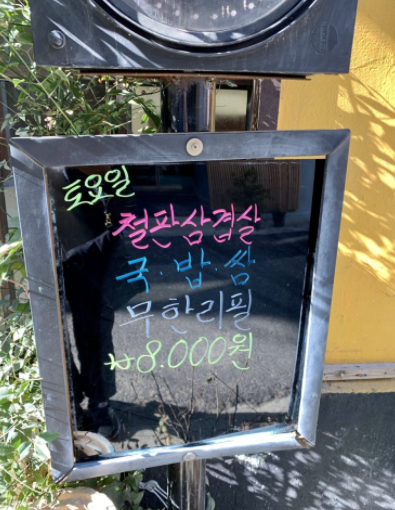 토요일
철판삼겹살
국.밥.쌈
무한리필
₩8.000원